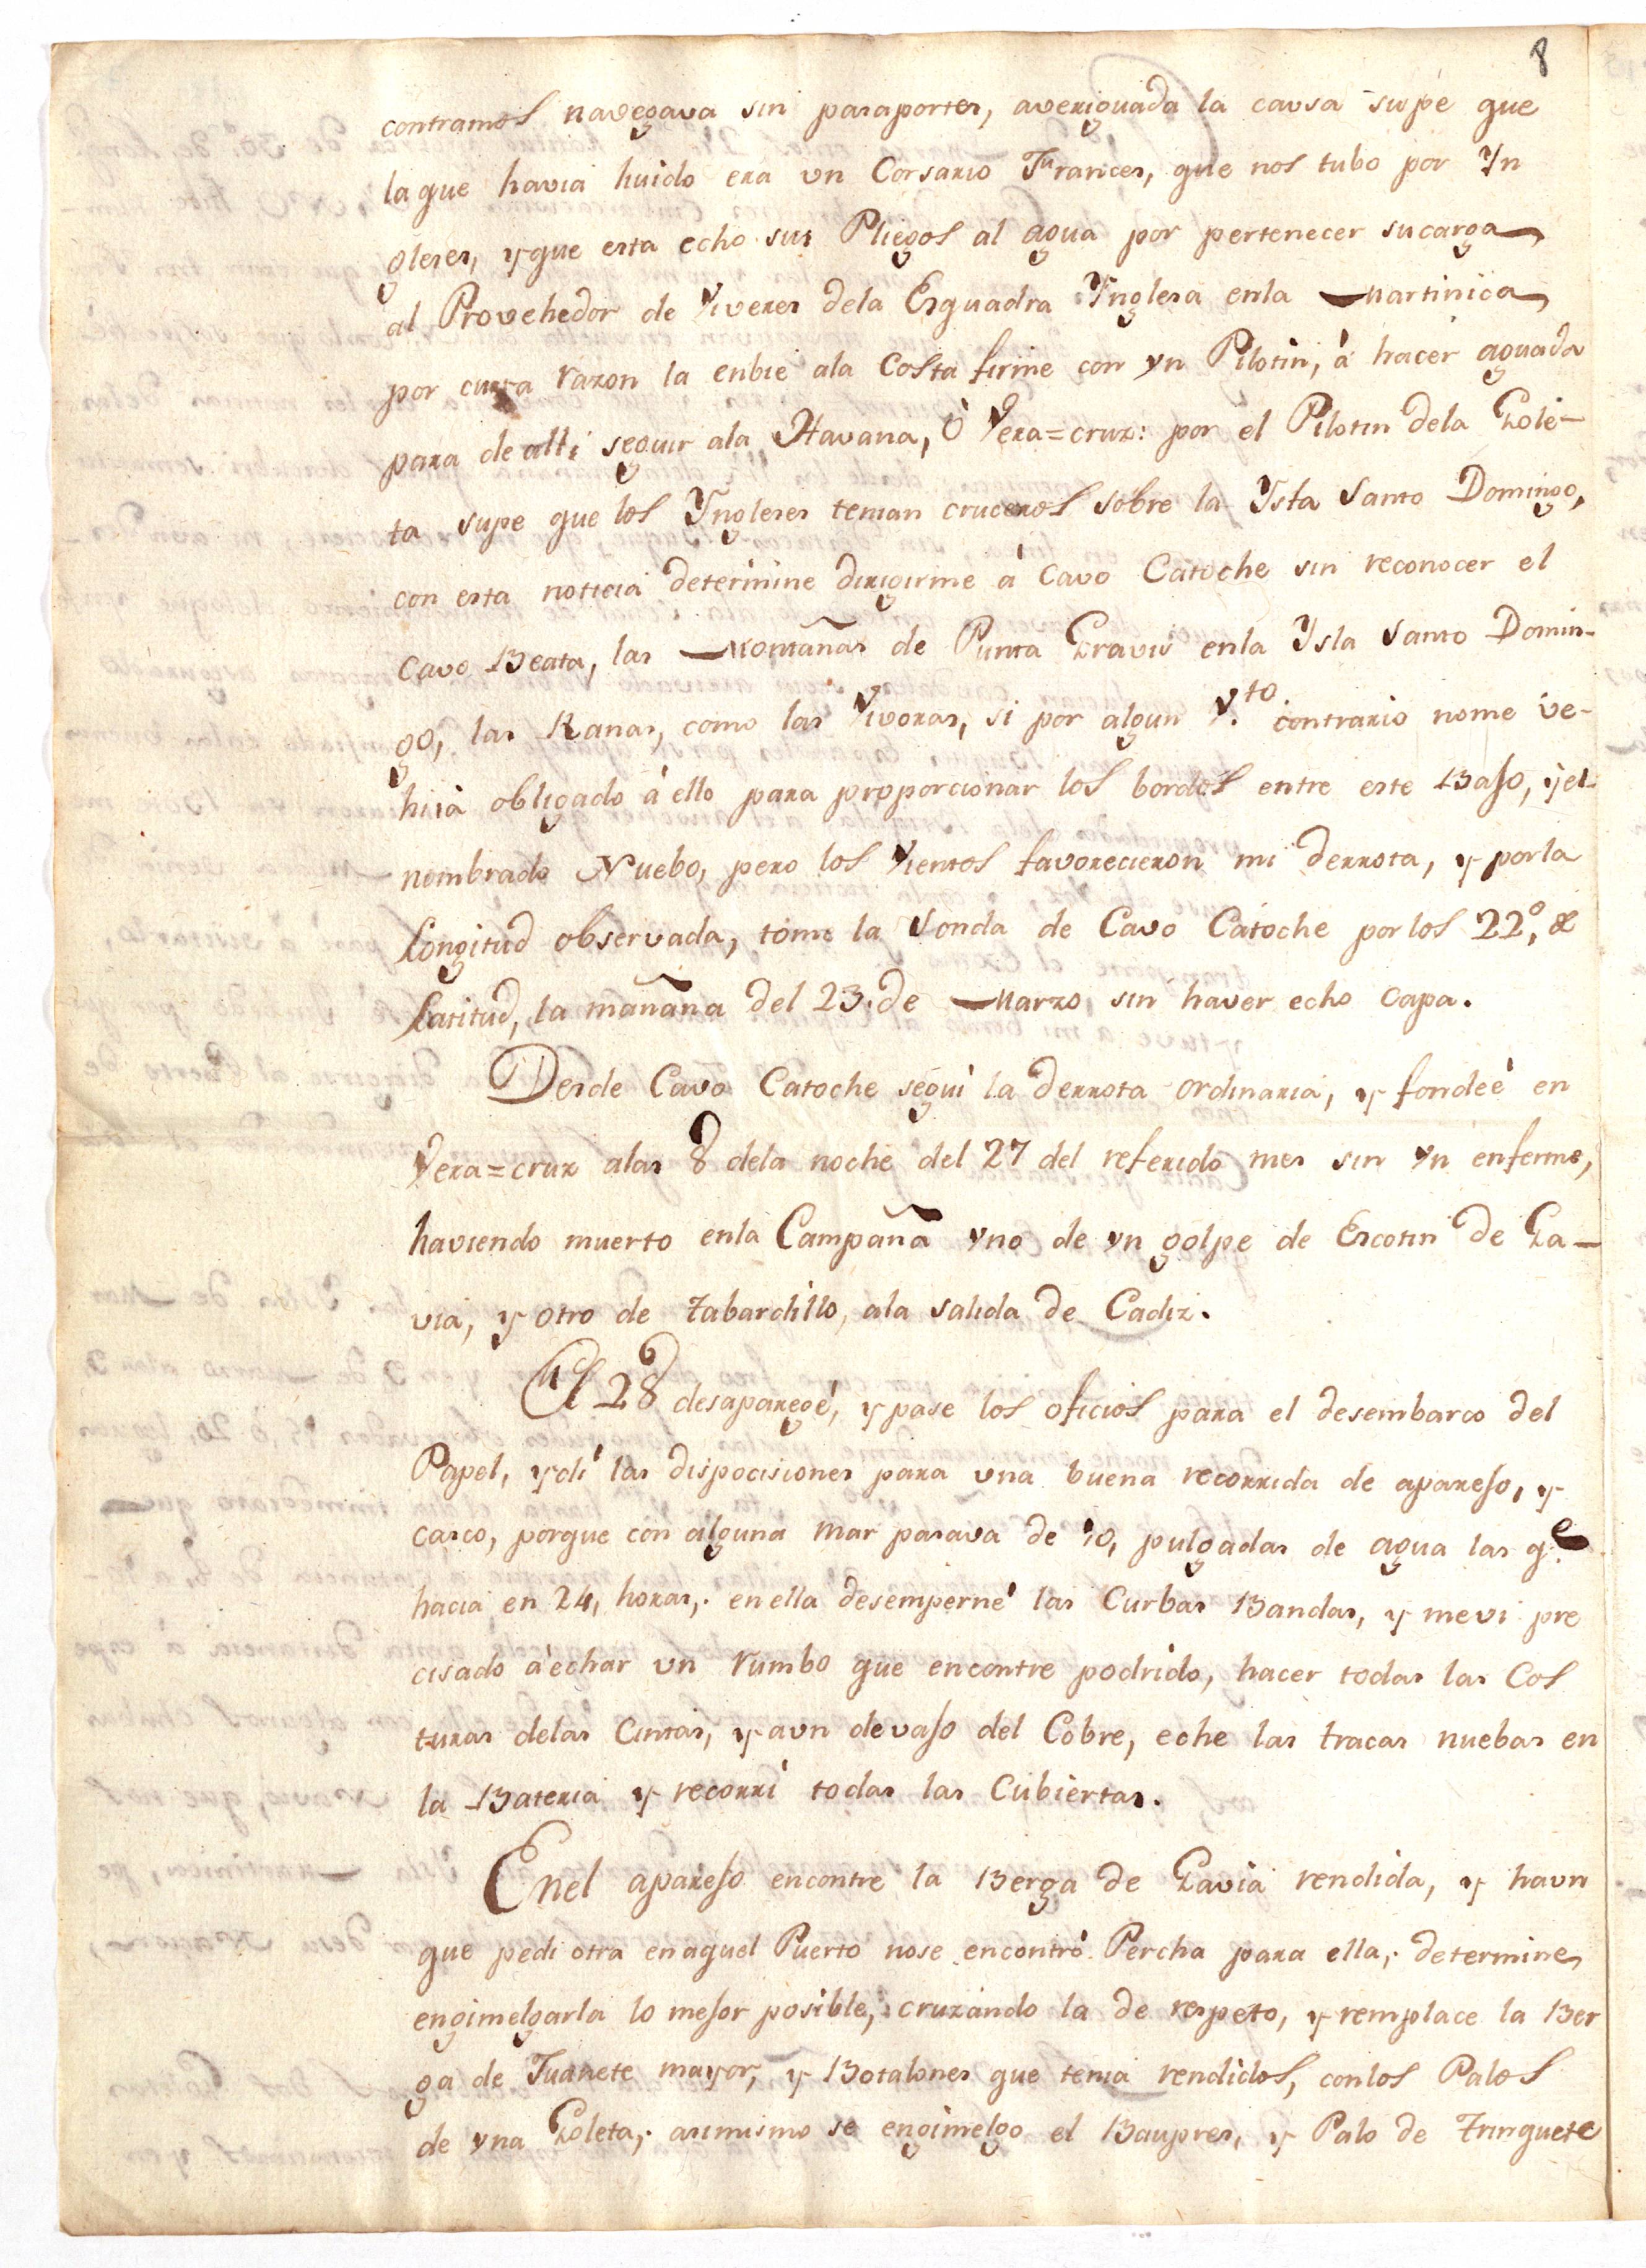 8
contramos navegava sin pasaportes, averiguada la causa supe que
la que havia huido era un Corsario Frances, que nos tubo por Yn
gleses, y que esta echo sus Pliegos al agua por pertenecer su carga
al Provehedor de Viveres dela Esquadra Ynglesa enla Martinica,
por cuya razon la enbie ala Costa firme con un Pilotin, á hacer aguada
para de alli seguir ala Havana, ò Vera=cruz: por el Pilotin dela Gole-
ta supe que los Yngleses tenian cruceros sobre la Ysla Santo Domingo,
con esta noticia determine dirigirme á Cavo Catoche sin reconocer el
Cavo Beata, las Montañas de Punta Gravis enla Ysla Santo Domin-
go, las Ranas, como las Vivoras, si por algun V.to contrario nome ve-
hiia obligado á ello para proporcionar los bordos entre este Baso, y el
nombrado Nuebo, pero los Vientos favorecieron mi derrota, y por la
Longitud observada, tome la Sonda de Cavo Catoche por los 22°, de
Latitud, la mañana del 23, de Marzo sin haver echo capa.
Desde Cavo Catoche segui la derrota ordinaria, y fondeé en
Vera=cruz alas 8 dela noche del 27 del referido mes sin un enfermo,
haviendo muerto enla Campaña uno de un golpe de Escotin de Ga-
via, y otro de tabardillo, ala salida de Cadiz.
El 28 desaparegé, y pase los oficios para el desembarco del
Papel, y di las dispocisiones para una buena recorrida de apareso, y
casco, porque con alguna mar pasava de 10, pulgadas de agua las q.e
hacia en 24, horas,. en ella desemperné las Curbas Bandas, y me vi pre
cisado á echar un rumbo que encontre podrido, hacer todas las Cos
turas delas Cintas, y aun devaso del Cobre, eche las tracas nuebas en
la Bateria y recorrí todas las Cubiertas.
Enel apareso encontre la Berga de Gavia rendida, y haun
que pedi otra en aquel Puerto nose encontró Percha para ella,. determine
engimelgarla lo mesor posible, cruzando la de respeto, y remplace la Ber
ga de Juanete mayor, y Botalones que tenia rendidos, conlos Palos
de una Goleta,. asimismo se engimelgo el Baupres, y Palo de Trinquete